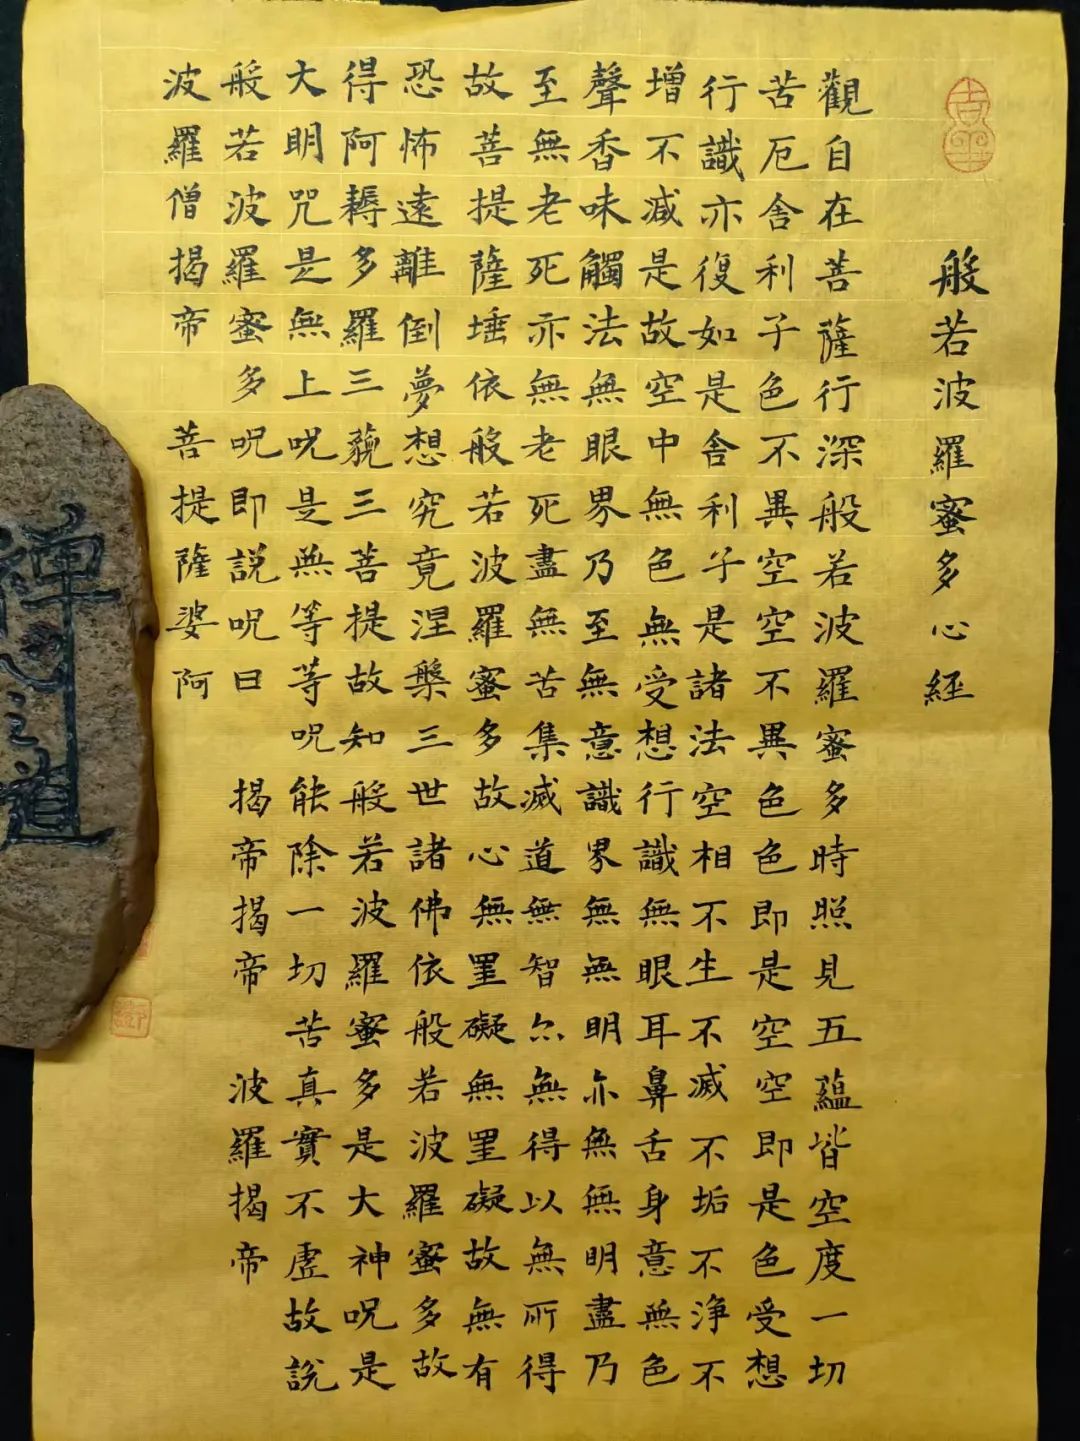 般若波羅蜜多心經
觀自在菩薩行深般若波羅蜜多時照見五蘊皆空度一切
苦厄舍利子色不異空空不異色色即是空空即是色受想
行識亦復如是舍利子是諸法空相不生不滅不垢不淨不
增不減是故空中無色無受想行識無眼耳鼻舌身意無色
聲香味觸法無眼界乃至無意識界無無明亦無無明盡乃
至無老死亦無老死盡無苦集滅道無智亦無得以無所得
故菩提薩埵依般若波羅蜜多故心無罣礙無罣礙故無有
恐怖遠離倒夢想究竟涅槃三世諸佛依般若波羅蜜多故
得阿耨多羅三藐三菩提故知般若波羅蜜多是大神呪是
大明咒是無上呪是無等等呪能除一切苦真實不虛故說
般若波羅蜜多呪即說呪曰 揭帝揭帝 波羅揭帝
波羅僧揭帝 菩提薩婆阿
禪心之道